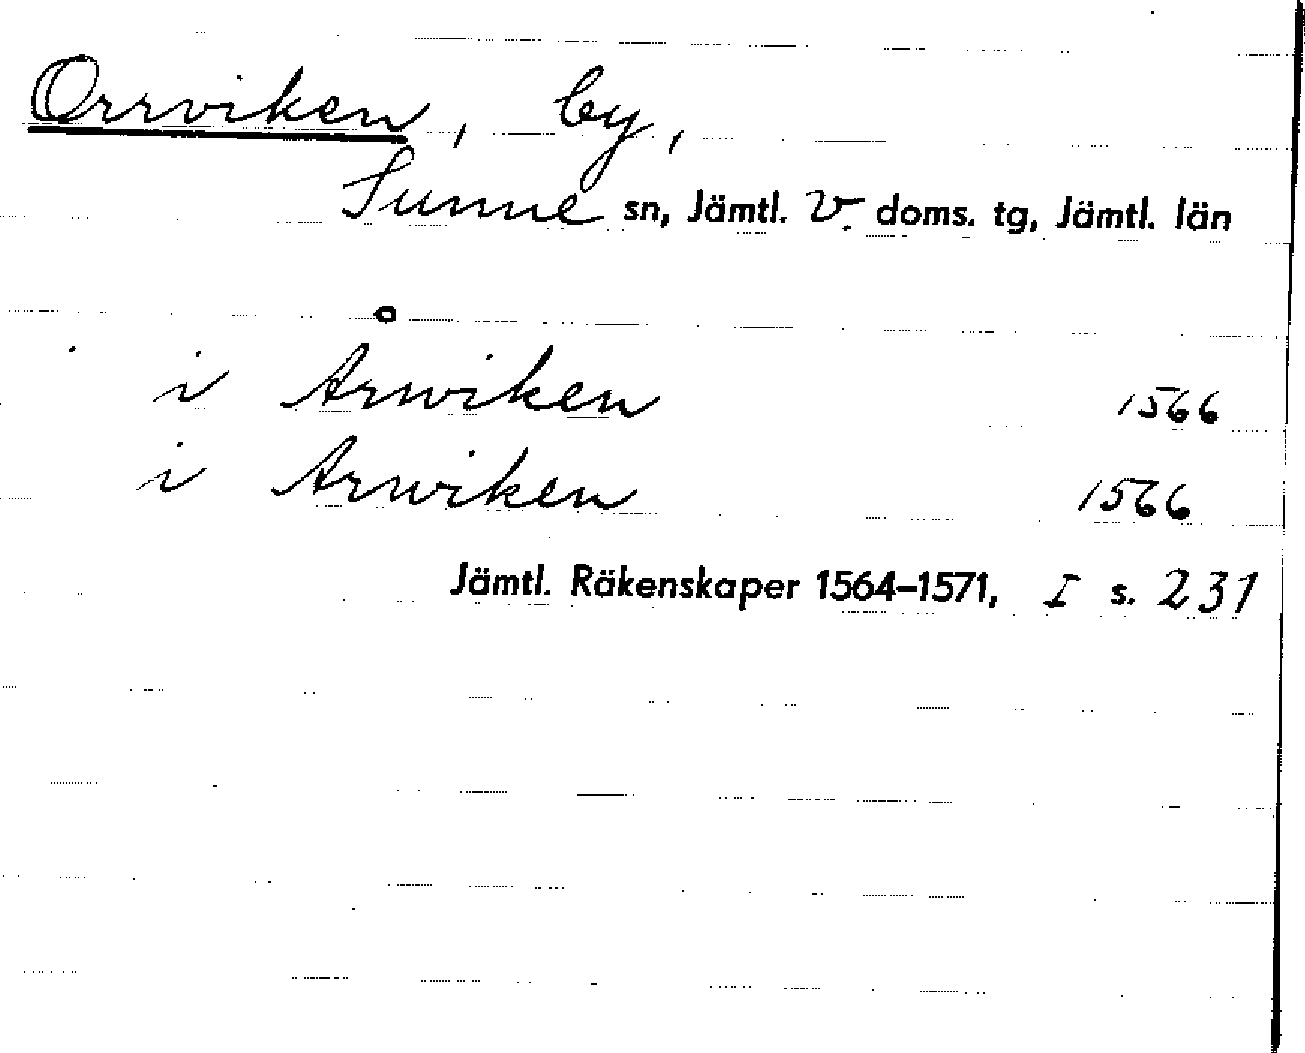 Orrviken, by,
Sunne sn, Jämtl. V. doms. tg, Jämtl. län
i Årwiken 1566
i Arwiken 1566
Jämtl. Räkenskaper 1564–1571, I s. 231